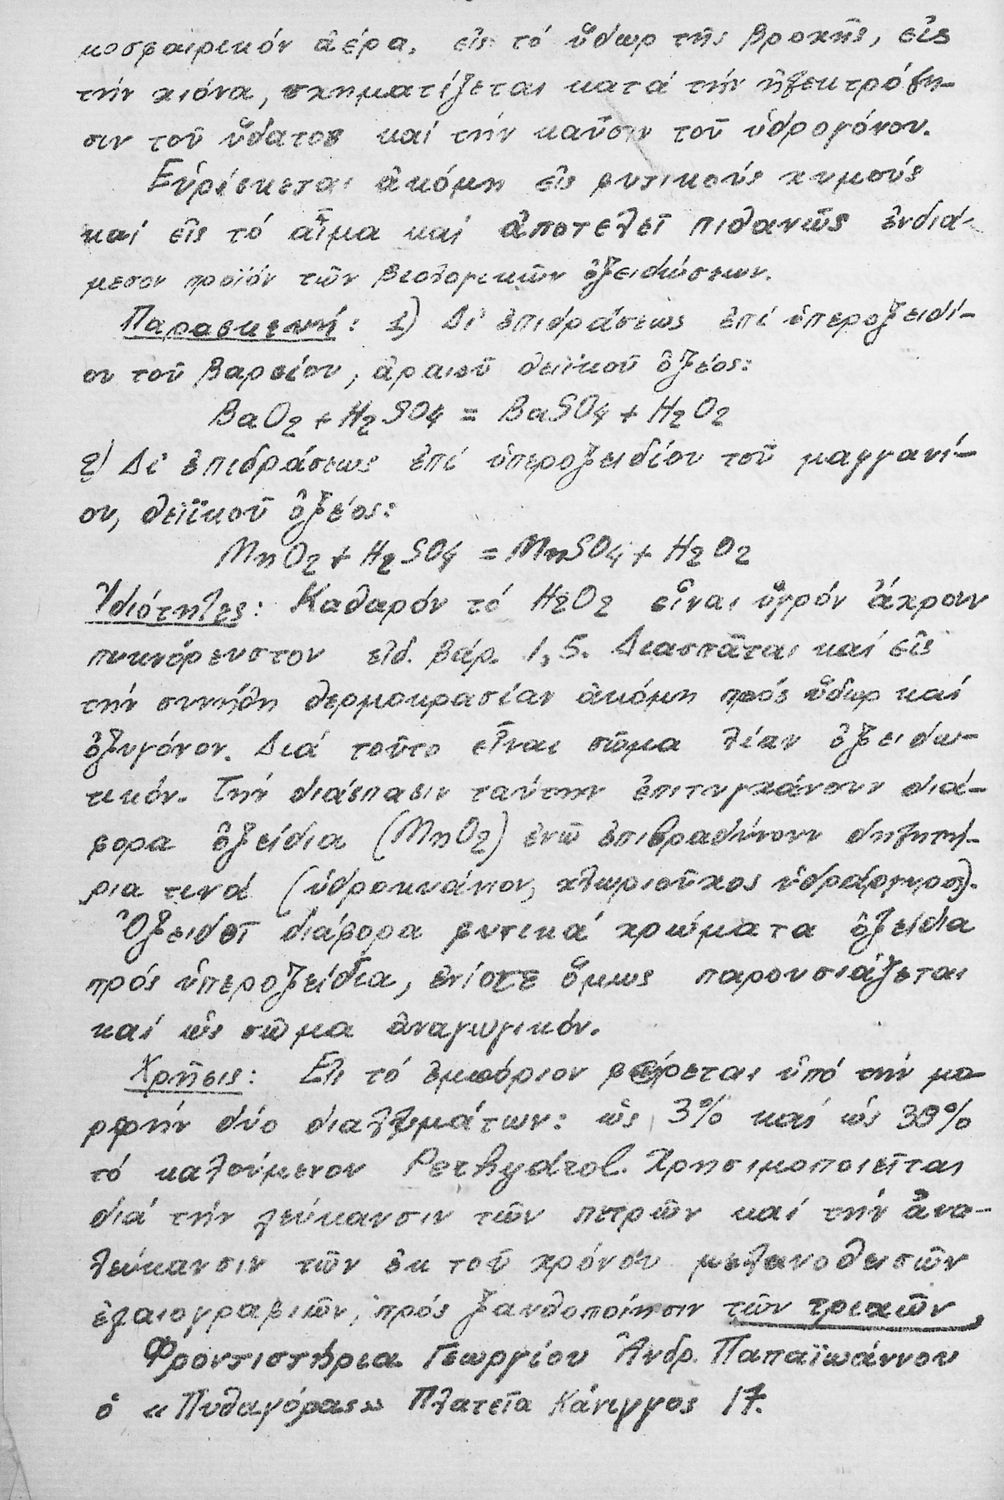 μοσφαιρικόν ἀέρα, εἰς τό ὕδωρ τῆς βροχῆς, εἰς
τήν χιόνα, σχηματίζεται κατά τήν ἠλεκτρόλη-
σιν τοῦ ὕδατος καί τήν καῦσιν τοῦ ὑδρογόνου.
Εὑρίσκεται ἀκόμη εἰς φυτικούς χυμούς
καί εἰς τό αἷμα καί ἀποτελεῖ πιθανῶς ἐνδιά-
μεσον προϊόν τῶν βιολογικῶν ὀξειδώσεων.
Παρασκευή: 1) Δι' ἐπιδράσεως ἐπί ὑπεροξειδί-
ου τοῦ βαρίου, ἀραιοῦ θειϊκοῦ ὀξέος:
BaO2 + H2SO4 = BaSO4 + H2O2
2) Δι' ἐπιδράσεως ἐπί ὑπεροξειδίου τοῦ μαγγανί-
ου, θειϊκοῦ ὀξέος:
MnO2 + H2SO4 = MnSO4 + H2O2
Ἰδιότητες: Καθαρόν τό H2O2 εἶναι ὑγρόν ἄχρουν
πυκνόρευστον εἰδ. βάρ. 1,5. Διασπᾶται καί εἰς
τήν συνήθη θερμοκρασίαν ἀκόμη πρός ὕδωρ καί
ὀξυγόνον. Διά τοῦτο εἶναι σῶμα λίαν ὀξειδω-
τικόν. Τήν διάσπασιν ταύτην ἐπιτυγχάνουν διά-
φορα ὀξείδια (MnO2) ἐνῶ ἐπιβραδύνουν δηλητή-
ρια τινά (ὑδροκυάνιον, χλωριοῦχος ὑδράργυρος).
Ὀξειδοῖ διάφορα φυτικά χρώματα ὀξείδια
πρός ὑπεροξείδια, ἐνίοτε ὅμως παρουσιάζεται
καί ὡς σῶμα ἀναγωγικόν.
Χρῆσις: Εἰς τό ἐμπόριον φέρεται ὑπό τήν μο-
ρφήν δύο διαλυμάτων: ὡς 3% καί ὡς 30%
τό καλούμενον Perhydrol. Χρησιμοποιεῖται
διά τήν λεύκανσιν τῶν πτερῶν καί τήν ἀνα-
λεύκανσιν τῶν ἐκ τοῦ χρόνου μελανοθεισῶν
ἐλαιογραφιῶν, πρός ξανθοποίησιν τῶν τριχῶν,
Φροντιστήρια Γεωργίου Ἀνδρ. Παπαϊωάννου
ὁ «Πυθαγόρας» Πλατεῖα Κάνιγγος 17.